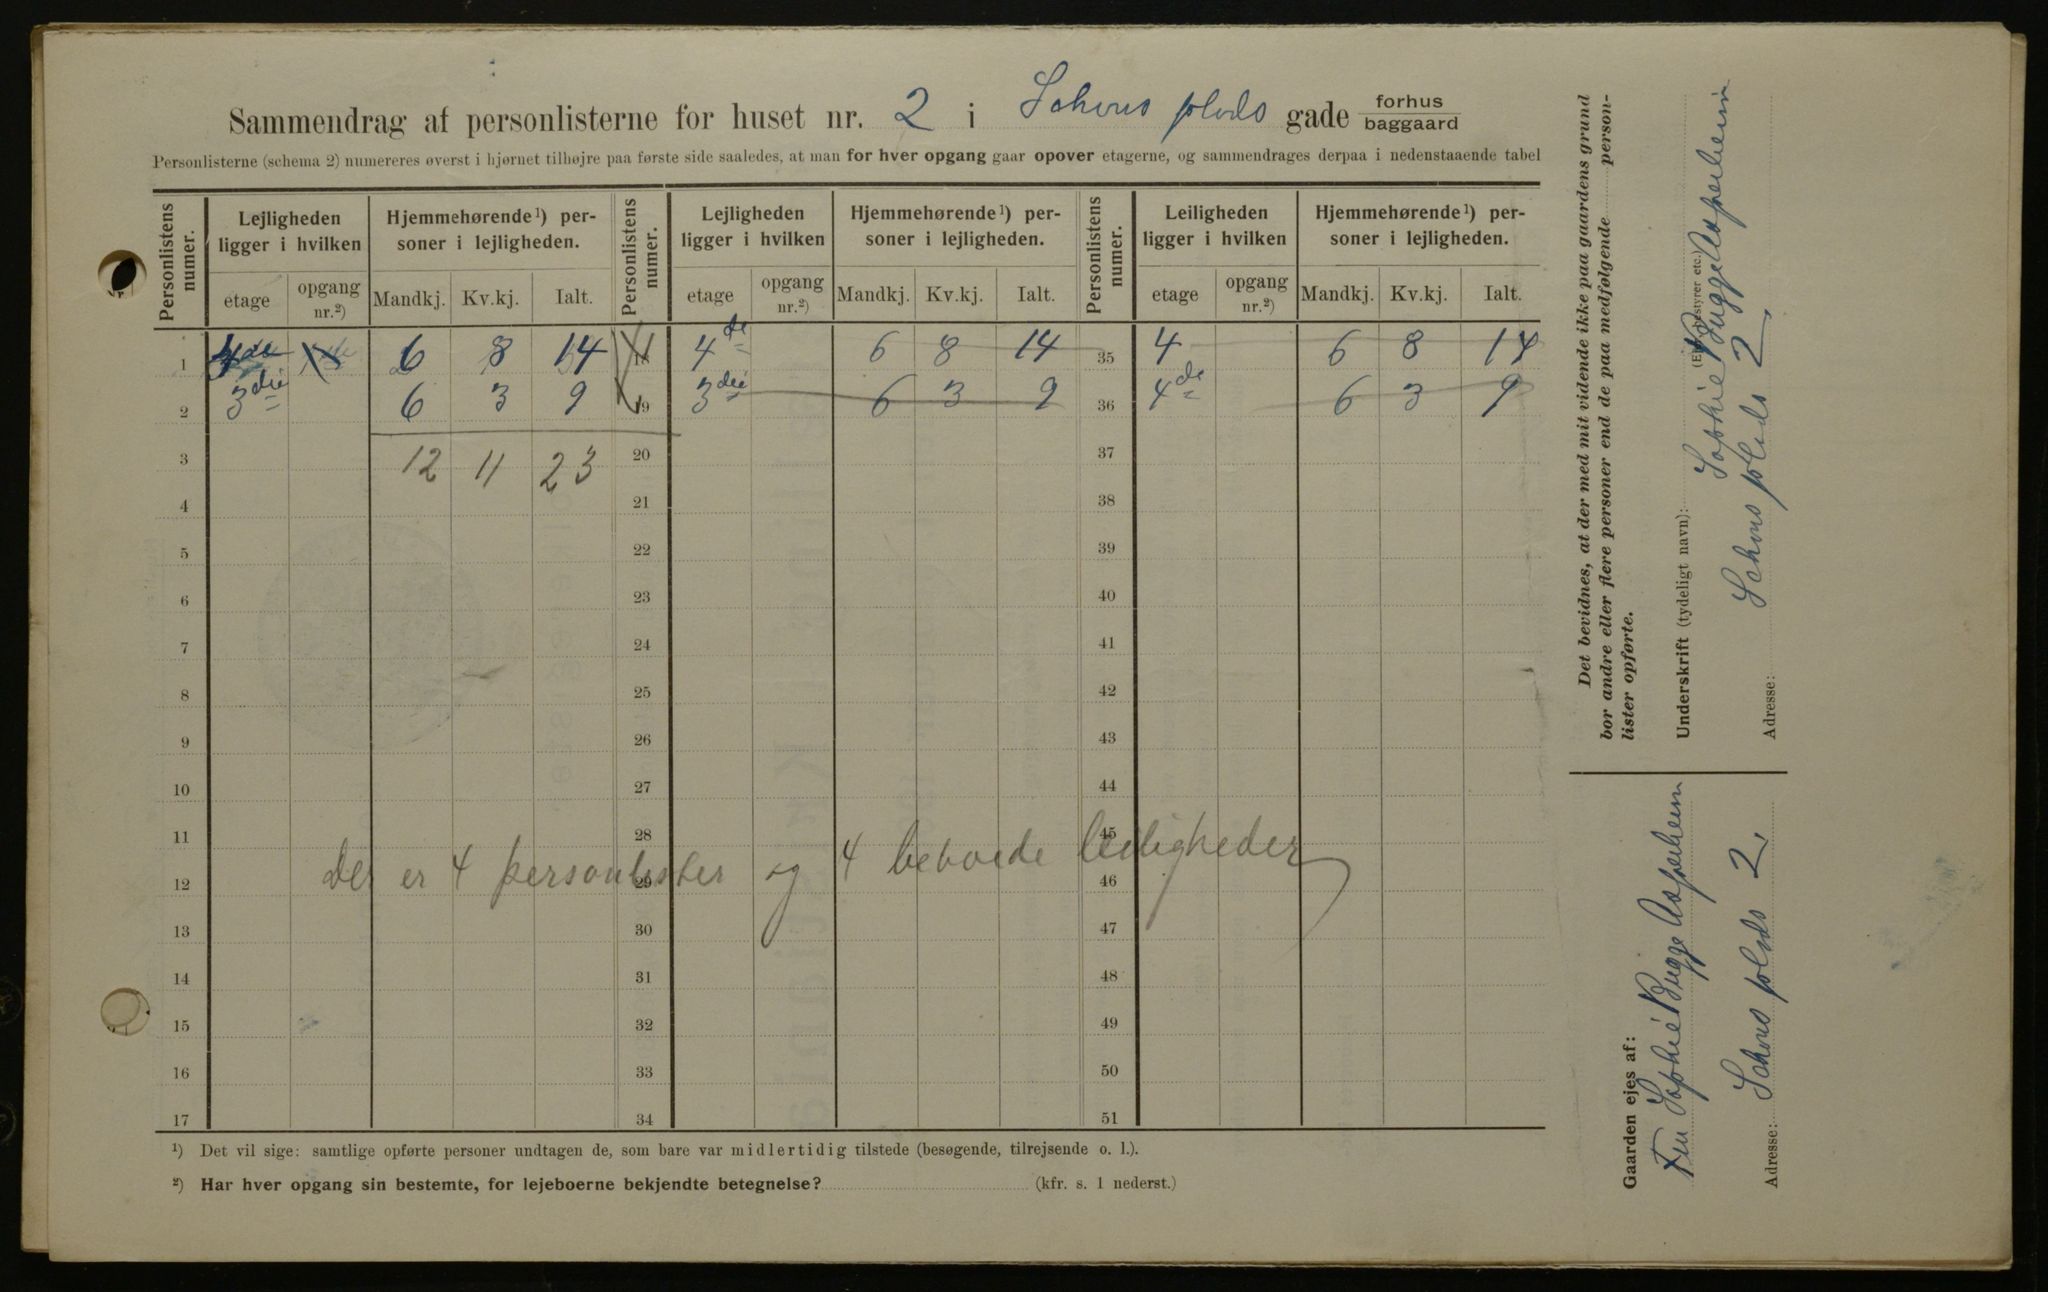 Sammendrag af personlisterne for huset nr. 2 i Schous plads gade forhus baggaard
Personlisterne (schema 2) numereres øverst i hjørnet tilhøjre paa første side saaledes, at man for hver opgang gaar opover etagerne, og sammendrages derpaa i nedenstaaende tabel
Personlistens numer. Lejligheden ligger i hvilken Hjemmehørende 1) personer i lejligheden. Personlistens numer. Lejligheden ligger i hvilken Hjemmehørende 1) personer i lejligheden. Personlistens numer. Leiligheden ligger i hvilken Hjemmehørende 1) personer i lejligheden.
etage opgang nr.2) Mandkj. Kv.kj. Ialt. etage opgang nr.2) Mandkj. Kv.kj. Ialt. etage opgang nr.2) Mandkj. Kv.kj. Ialt.
1 4de 6 8 14 18 4de 6 8 14 35 4 6 8 14
2 3die 6 3 9 19 3die 6 3 9 36 4de 6 3 9
3 12 11 23 20 37
4 21 38
5 22 39
6 23 40
7 24 41
8 25 42
9 26 43
10 27 44
11 28 45
Der er 4 personlister og 4 beboede leiligheder
12 29 46
13 30 47
14 31 48
15 32 49
16 33 50
17 34 51
1) Det vil sige: samtlige opførte personer undtagen de, som bare var midlertidig tilstede (besøgende, tilrejsende o. l.).
2) Har hver opgang sin bestemte, for lejeboerne bekjendte betegnelse? (kfr. s. 1 nederst.)
Det bevidnes, at der med mit vidende ikke paa gaardens grund
bor andre eller flere personer end de paa medfølgende personlister opførte.
Underskrift (tydeligt navn): Sophie Bugge Asperheim
(Eier, bestyrer etc.)
Adresse: Schous plads 2
Gaarden ejes af:
Fru Sophie Bugge Asperheim
Adresse: Schous plads 2